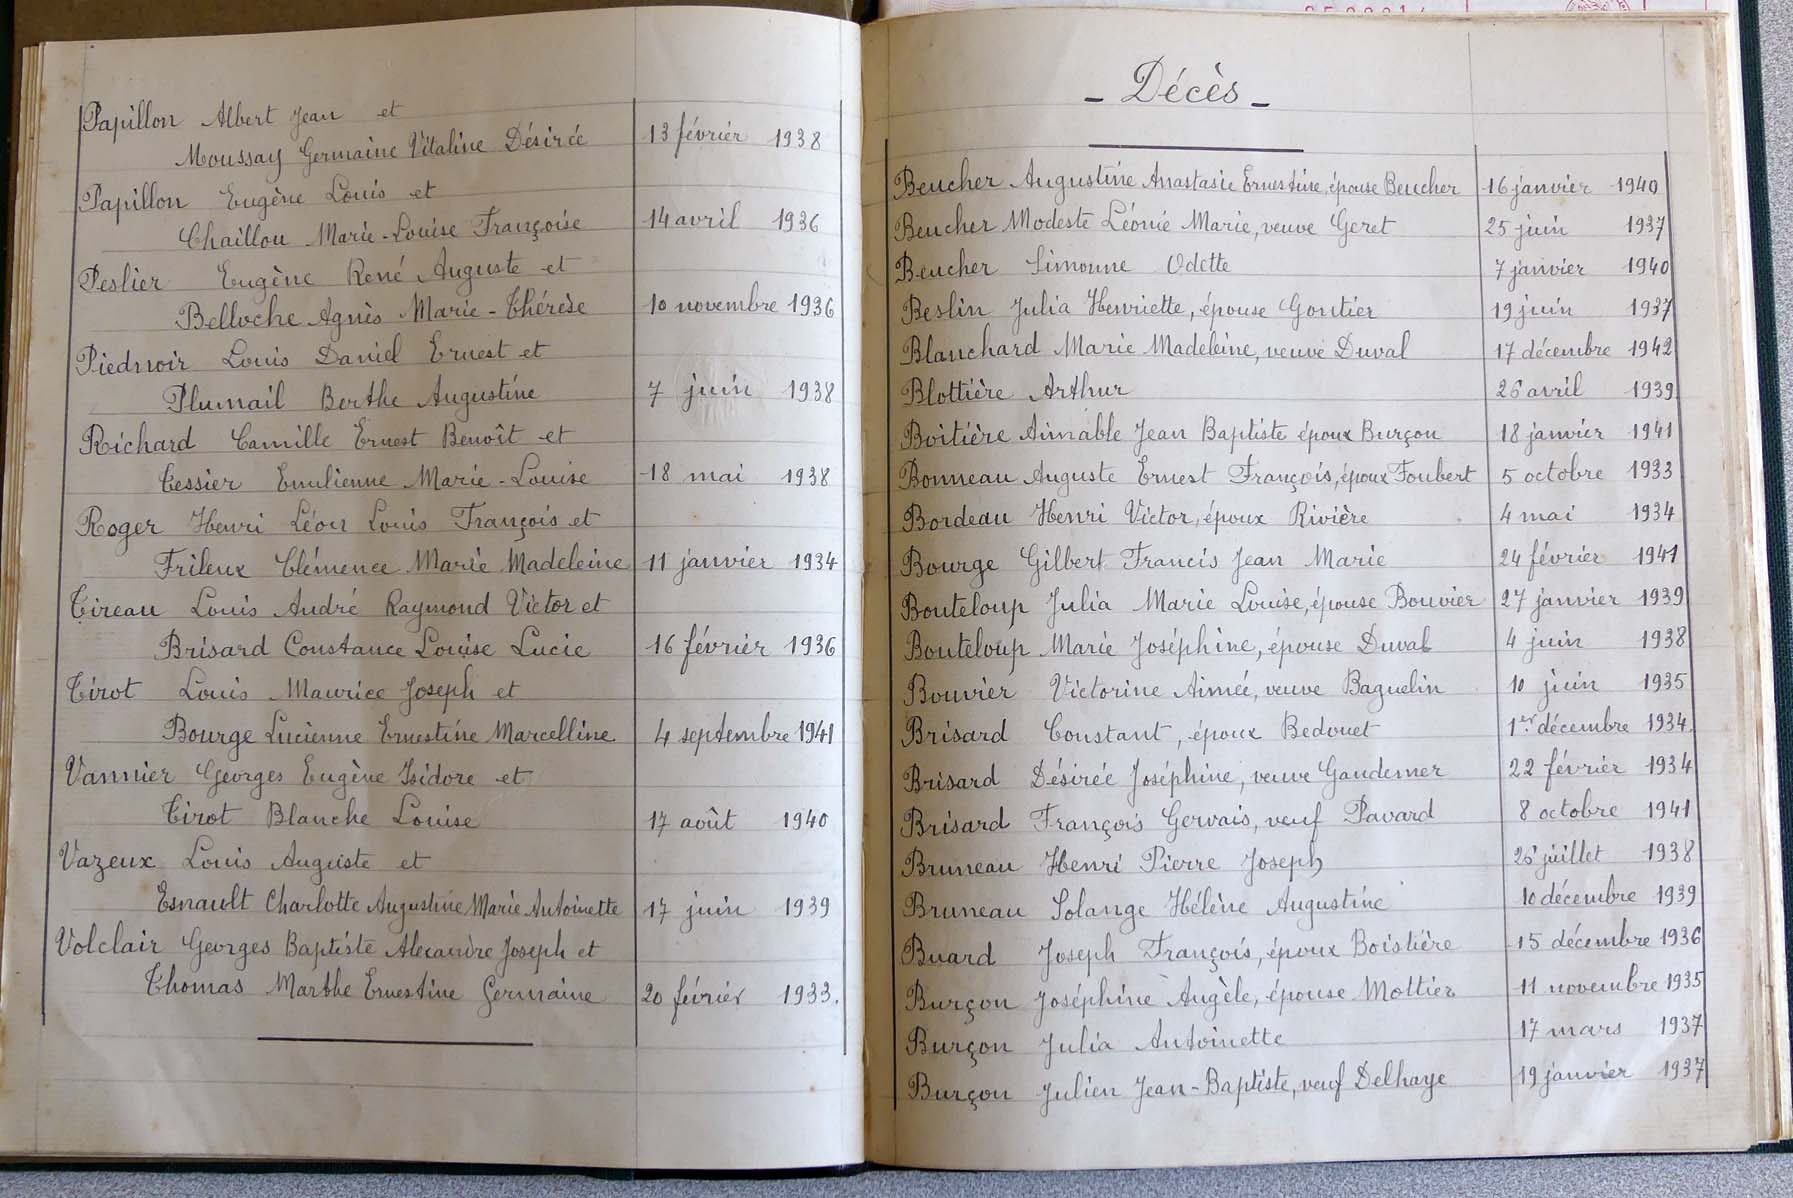 Papillon Albert Jean et
Moussay Germaine Vitaline Désirée 13 février 1938
Papillon Eugène Louis et
Chaillou Marie-Louise Françoise 14 avril 1936
Peslier Eugène René Auguste et
Belloche Agnès Marie-Thérèse 10 novembre 1936
Piednoir Louis Daniel Ernest et
Plumail Berthe Augustine 7 juin 1938
Richard Camille Ernest Benoît et
Tessier Emilienne Marie-Louise 18 mai 1938
Roger Henri Léon Louis François et
Frileux Clémence Marie Madeleine 11 janvier 1934
Tireau Louis André Raymond Victor et
Brisard Constance Louise Lucie 16 février 1936
Tirot Louis Maurice Joseph et
Bourge Lucienne Ernestine Marcelline 4 septembre 1941
Vannier Georges Eugène Isidore et
Tirot Blanche Louise 17 août 1940
Vazeux Louis Auguste et
Esnault Charlotte Augustine Marie Antoinette 17 juin 1939
Volclair Georges Baptiste Alexandre Joseph et
Thomas Marthe Ernestine Germaine 20 février 1933.
- Décès -
Beucher Augustine Anastasie Ernestine, épouse Beucher 16 janvier 1940
Beucher Modeste Léonie Marie, veuve Geret 25 juin 1937
Beucher Simonne Odette 7 janvier 1940
Beslin Julia Henriette, épouse Gontier 19 juin 1937
Blanchard Marie Madeleine, veuve Duval 17 décembre 1942
Blottière Arthur 26 avril 1939
Boitière Aimable Jean Baptiste époux Burçon 18 janvier 1941
Bonneau Auguste Ernest François, époux Foubert 5 octobre 1933
Bordeau Henri Victor, époux Rivière 4 mai 1934
Bourge Gilbert Francis Jean Marie 24 février 1941
Bouteloup Julia Marie Louise, épouse Bouvier 27 janvier 1939
Bouteloup Marie Joséphine, épouse Duval 4 juin 1938
Bouvier Victorine Aimée, veuve Baguelin 10 juin 1935
Brisard Constant, époux Bedouet 1er décembre 1934.
Brisard Désirée Joséphine, veuve Gandemer 22 février 1934
Brisard François Gervais, veuf Pavard 8 octobre 1941
Bruneau Henri Pierre Joseph 26 juillet 1938
Bruneau Solange Hélène Augustine 10 décembre 1939
Buard Joseph François, époux Boistière 15 décembre 1936
Burçon Joséphine Angèle, épouse Mottier 11 novembre 1935
Burçon Julia Antoinette 17 mars 1937
Burçon Julien Jean-Baptiste, veuf Delhaye 19 janvier 1937